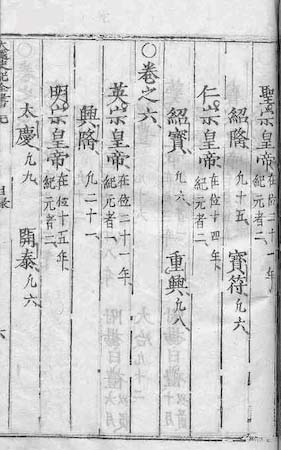 聖宗皇帝 在位二十一年 紀元者二
紹隆 凡十五 寶符 凡六
仁宗皇帝 在位十四年 紀元者二
紹寶 凡六 重興 凡八
○卷之六
英宗皇帝 在位二十一年 紀元者
興隆 凡二十一
明宗皇帝 在位十五年 紀元者二
太慶 凡九 開泰 凡六
大越史記全書 目录 六